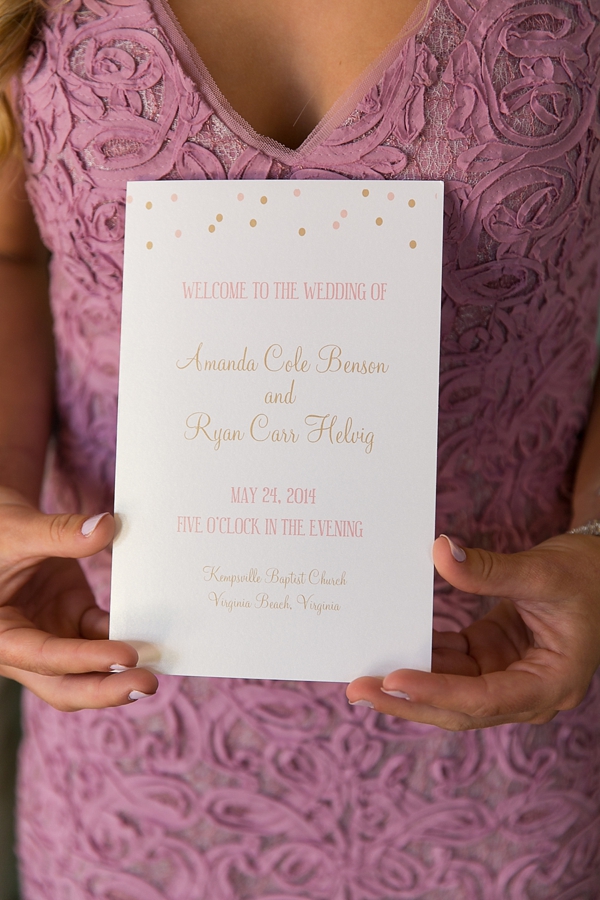 WELCOME TO THE WEDDING OF
Amanda Cole Benson
and
Ryan Carr Helvig
MAY 24, 2014
FIVE O'CLOCK IN THE EVENING
Kempsville Baptist Church
Virginia Beach, Virginia